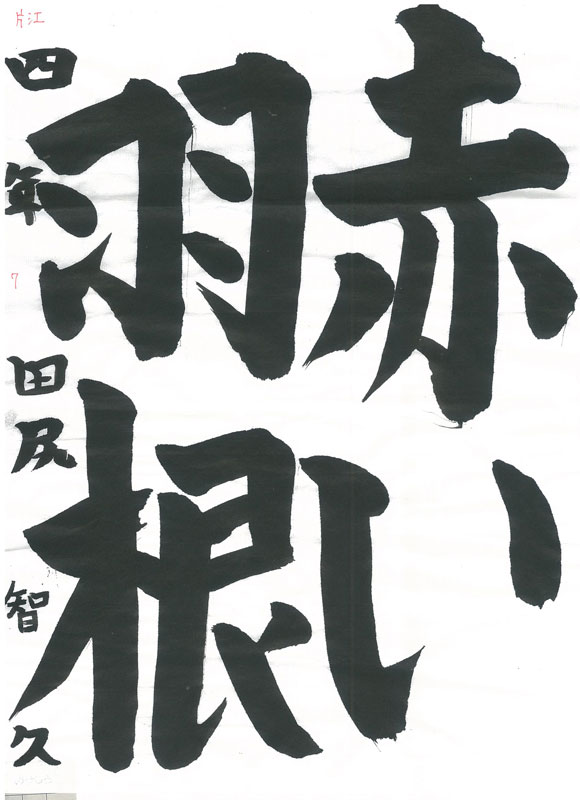 赤い
羽根
四年 田尻 智久
片江
7